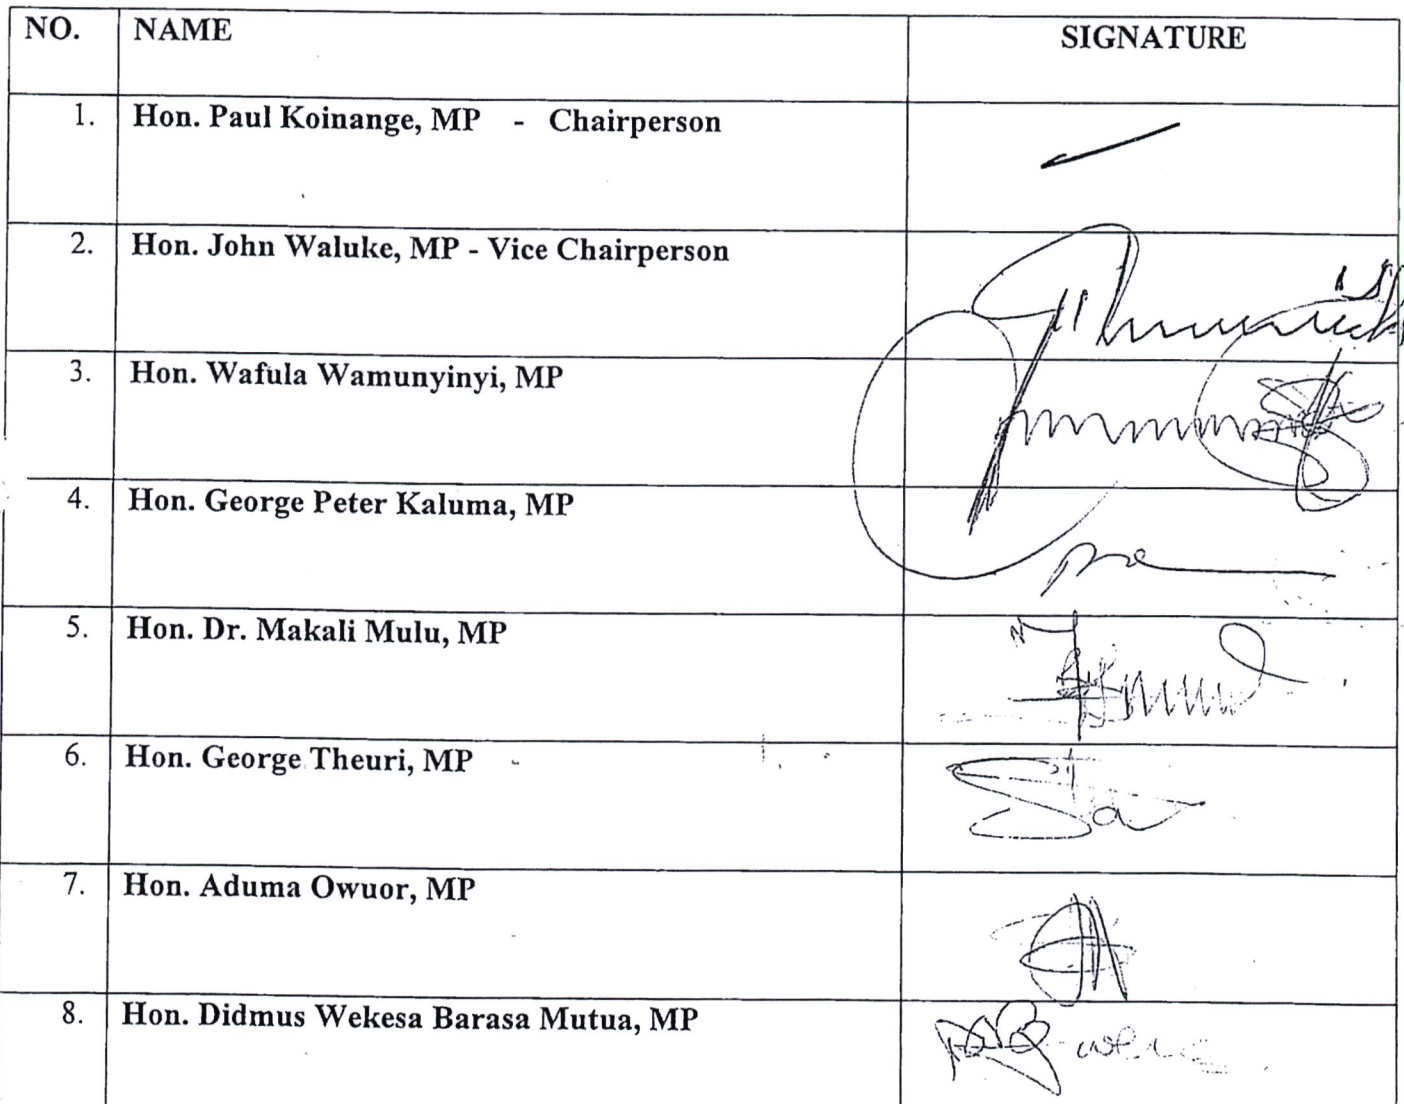 NO. NAME SIGNATURE
1. Hon. Paul Koinange, MP - Chairperson
2. Hon. John Waluke, MP - Vice Chairperson
3. Hon. Wafula Wamunyinyi, MP
4. Hon. George Peter Kaluma, MP
5. Hon. Dr. Makali Mulu, MP
6. Hon. George Theuri, MP
7. Hon. Aduma Owuor, MP
8. Hon. Didmus Wekesa Barasa Mutua, MP